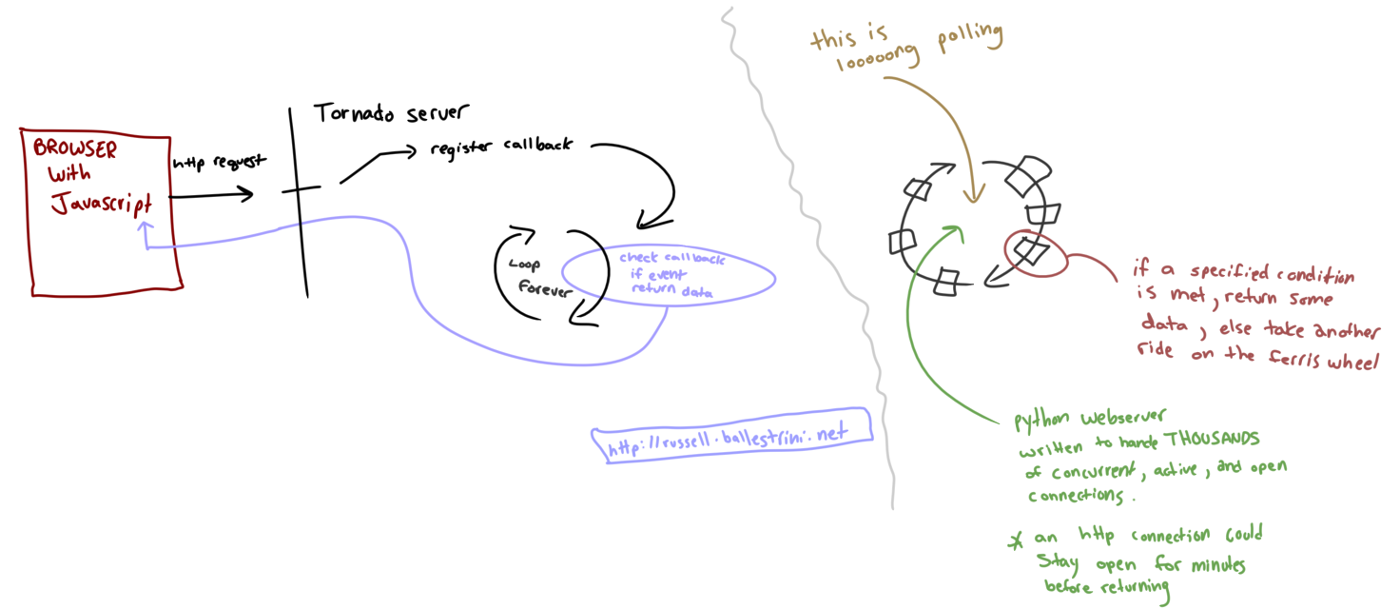 Tornado server
BROWSER
with
Javascript
http request
register callback
Loop
Forever
check callback
if event
return data
http://russell.ballestrini.net
this is
looooong polling
if a specified condition
is met, return some
data, else take another
ride on the ferris wheel
python webserver
written to hande THOUSANDS
of concurrent, active, and open
connections.
* an http connection could
stay open for minutes
before returning